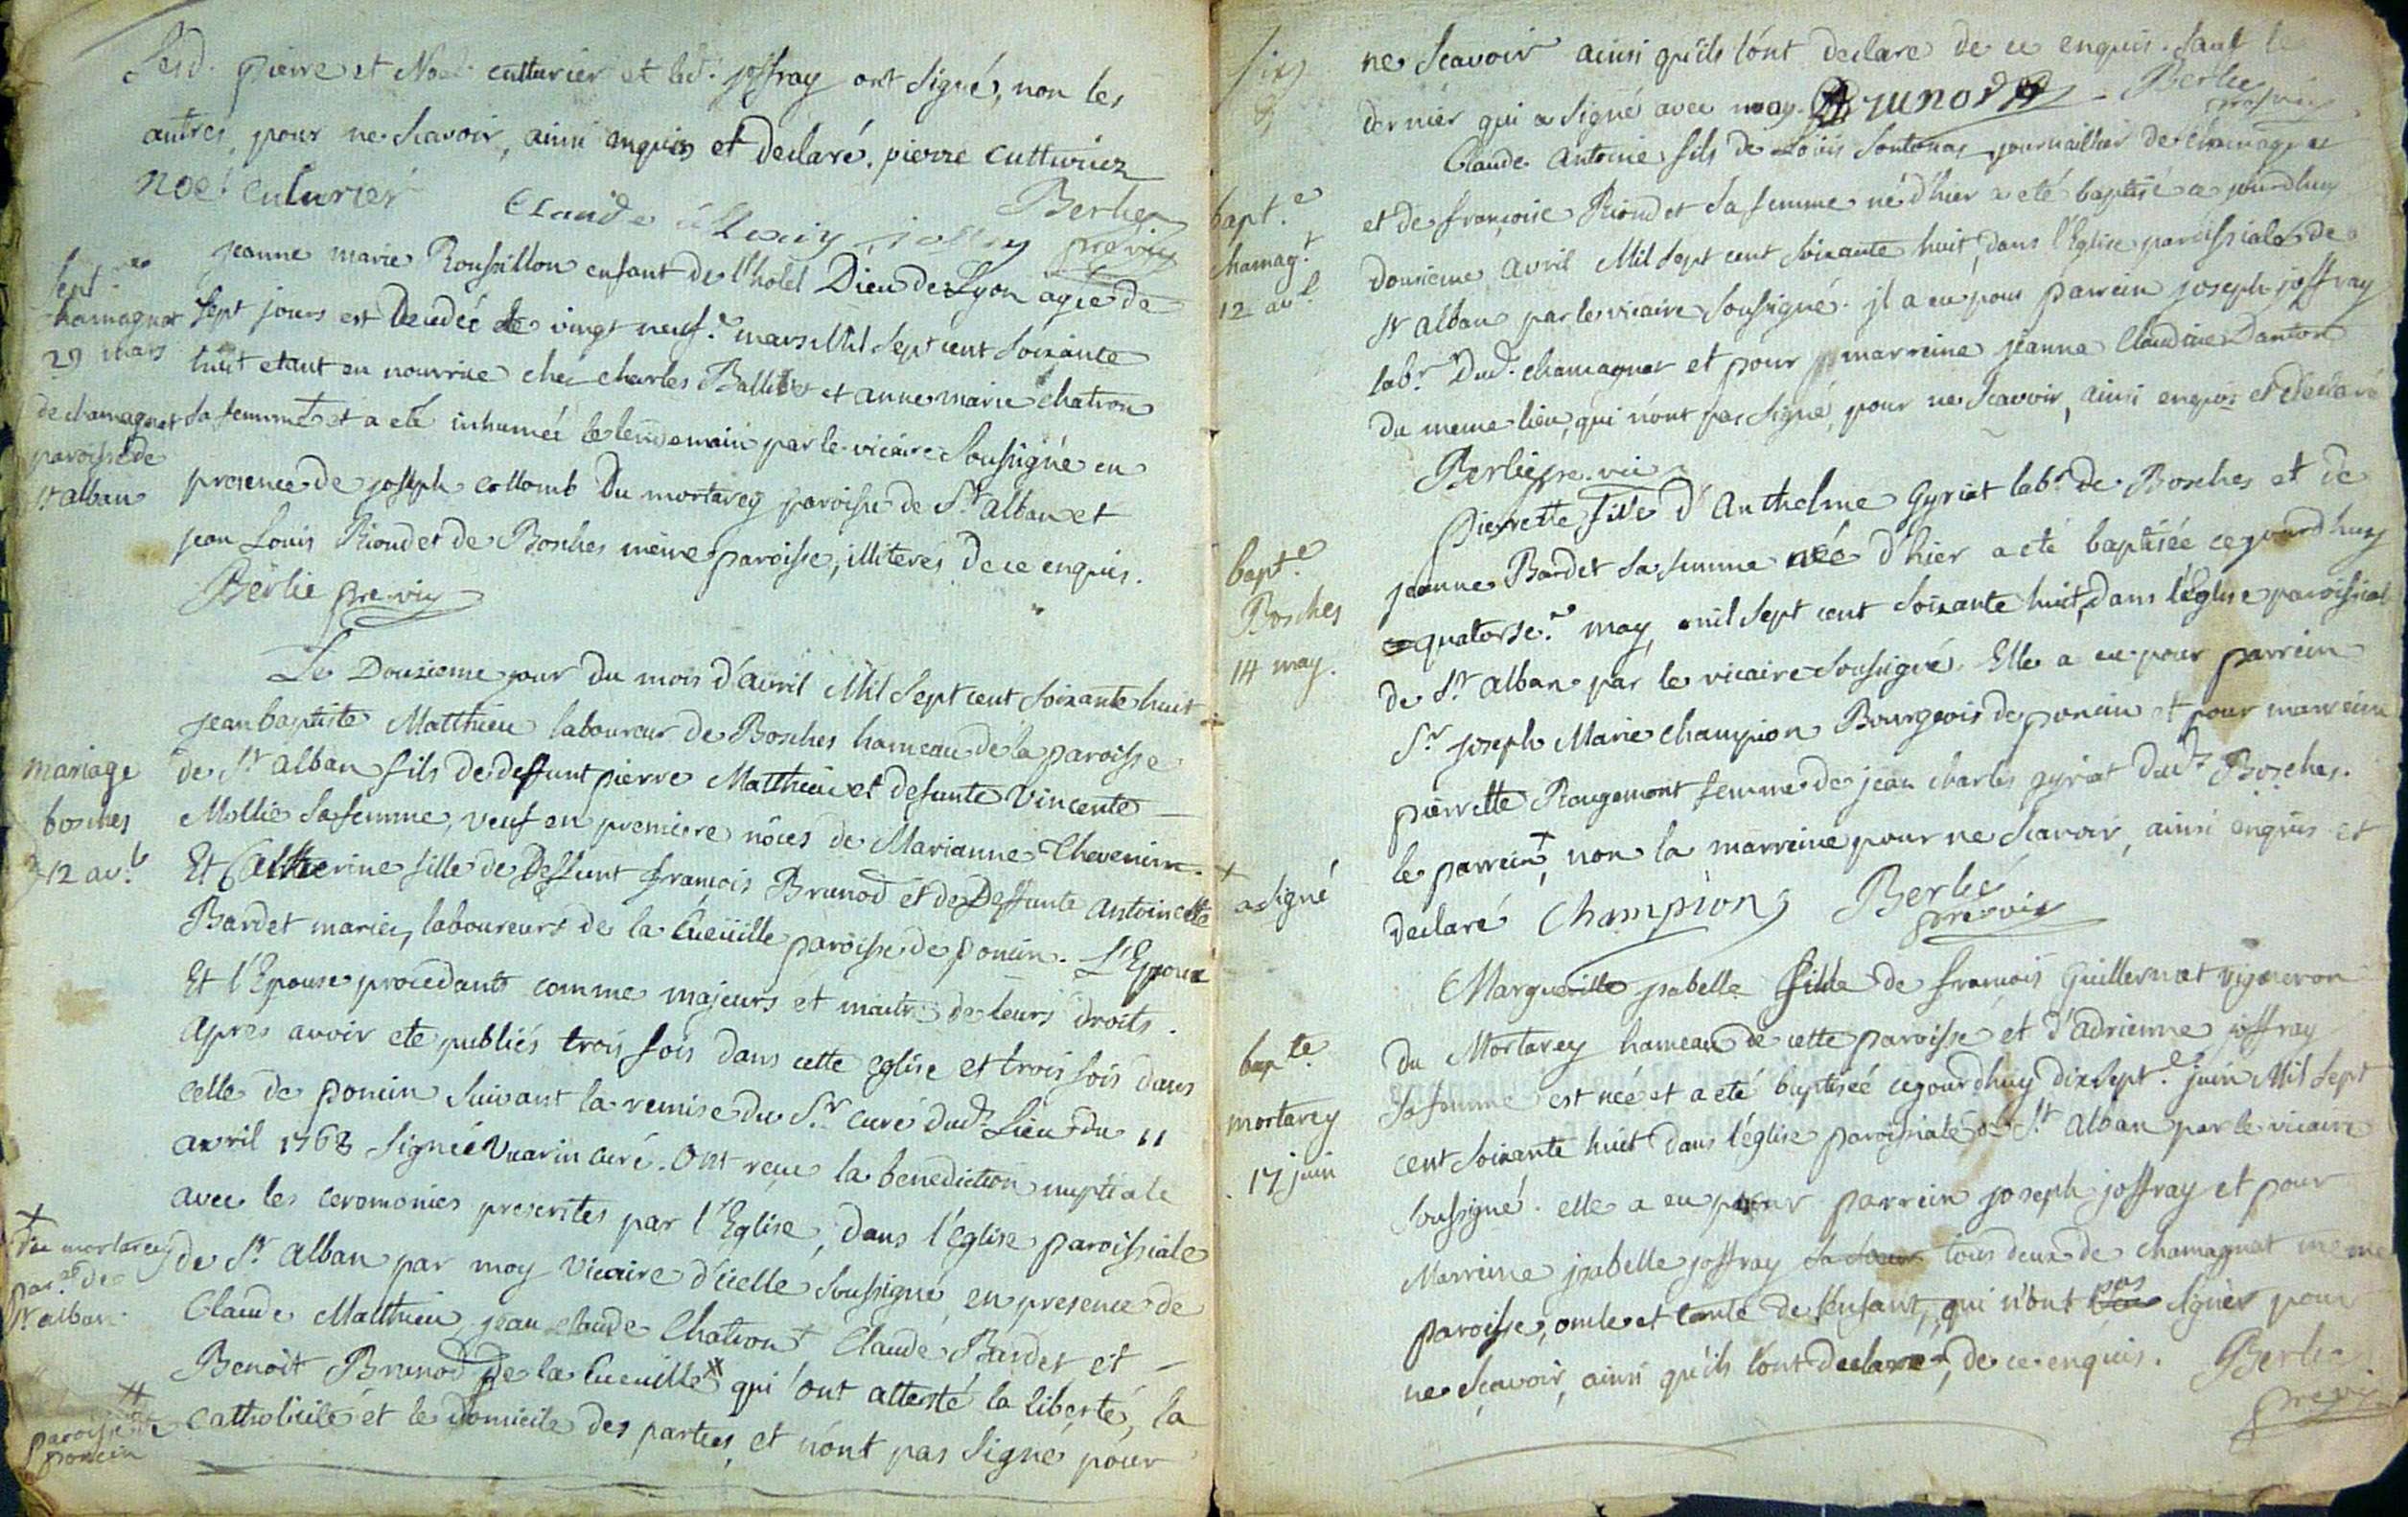 Lesd. pierre et Noel culturier et led. joffray ont signé, non les
autres, pour ne scavoir, ainsi enquis et declaré. pierre cutturier
noel culurier Claude joffray Berlie
pre vic
sept.re
chamagnat
29 mars
de chamagnat
paroisse de
st alban
jeanne marie Roussillon enfant de l'hotel Dieu de Lyon agée de
sept jours est decedée le vingt neuf.e mars Mil sept cent soixante
huit etant en nourrice chez charles Ballivet et anne marie chatron
sa femme et a eté inhumée le lendemain par le vicaire soussigné en
presence de joseph collomb du mortarey paroisse de St alban et
jean Louis Rioudet de Bosches même paroisse, illiteres de ce enquis.
Berlie pre vic
mariage
bosches
12 av.l
Le Douzieme jour du mois d'avril Mil sept cent soixante huit
jean baptiste Matthieu laboureur de Bosches hameau de la paroisse
de St alban fils de deffunt pierre Matthieu et defunte Vincente
Mollie sa femme, veuf en premiere nôces de Marianne Thevenin.
Et Catherine fille de Deffunt francois Brunod et de Deffunte antoinette
Bardet mariés, laboureurs de la Cueuille paroisse de poncin. L'Epoux
Et l'Epouse procedants comme majeurs et maitres de leurs droits.
apres avoir eté publiés trois fois dans cette eglise et trois fois dans
celle de poncin suivant la remise du Sr. curé dud. Lieu du 11
avril 1768 signée Vuarin curé. Ont reçu la benediction nuptiale
avec les ceremonies prescrites par l'Eglise, dans l'eglise paroissiale
de St alban par moy vicaire d'icelle soussigné en presence de
Claude Matthieu jean claude Chatron + Claude Bardet et
Benoit Brunod de la Cueuille # qui ont attesté la liberté, la
catholicité et le domicile des parties, et n'ont pas signé pour
+
du mortarey
par.se de
st alban
#
paroisse de
poncin
six
ne scavoir ainsi qu'ils l'ont declare de ce enquis. sauf le
dernier qui a signé avec moy. Brunod Berlie
pre vic
bapt.e
chamag.t
12 av.l
Claude antoine fils de Louis fontenas journaillier de chamagnat
et de francoise Rioudet sa femme né d'hier a eté baptisé ce jourdhuy
douzieme avril Mil sept cent soixante huit, dans l'Eglise paroissiale de
st alban par le vicaire soussigné. jl a eu pour parrein joseph joffray
lab.r dud. chamagnat et pour marreine jeanne Claudine Danton
du meme lieu, qui n'ont pas signé, pour ne scavoir, ainsi enquis et declaré
Berlie pre. vic
bapt.e
Bosches
14 may.
pierrette fille d'Anthelme Gyriat lab.r de Bosches et de
jeanne Bardet sa femme née d'hier a eté baptisée ce jourdhuy
quatorze.e may, mil sept cent soixante huit, dans l'Eglise paroissial
de St alban par le vicaire soussigné. Elle a eu pour parrein
Sr joseph Marie champion Bourgeois de poncin et pour marreine
pierrette Rougemont femme de jean charles gyriat dud.t Bosches.
le parrein +, non la marreine pour ne scavoir, ainsi enquis et
declaré Champion Berlié
pre vic
+
a signé
bap.te
mortarey
17 juin
Marguerille jsabelle fille de francois Guillermet vigneron
du Mortarey hameau de cette paroisse et d'adrienne joffray
sa femme est née et a eté baptiseé cejourdhuy dixsept.e juin Mil sept
cent soixante huit dans l'église paroissiale de St. alban par le vicaire
soussigné. elle a eu pour parrein joseph joffray et pour
Marreine jsabelle joffray sa soeur tous deux de chamagnat meme
paroisse, oncle et tante de l'enfant, qui n'ont pas signer pour
ne scavoir, ainsi qu'ils l'ont declaré, de ce enquis. Berlie
pre vic